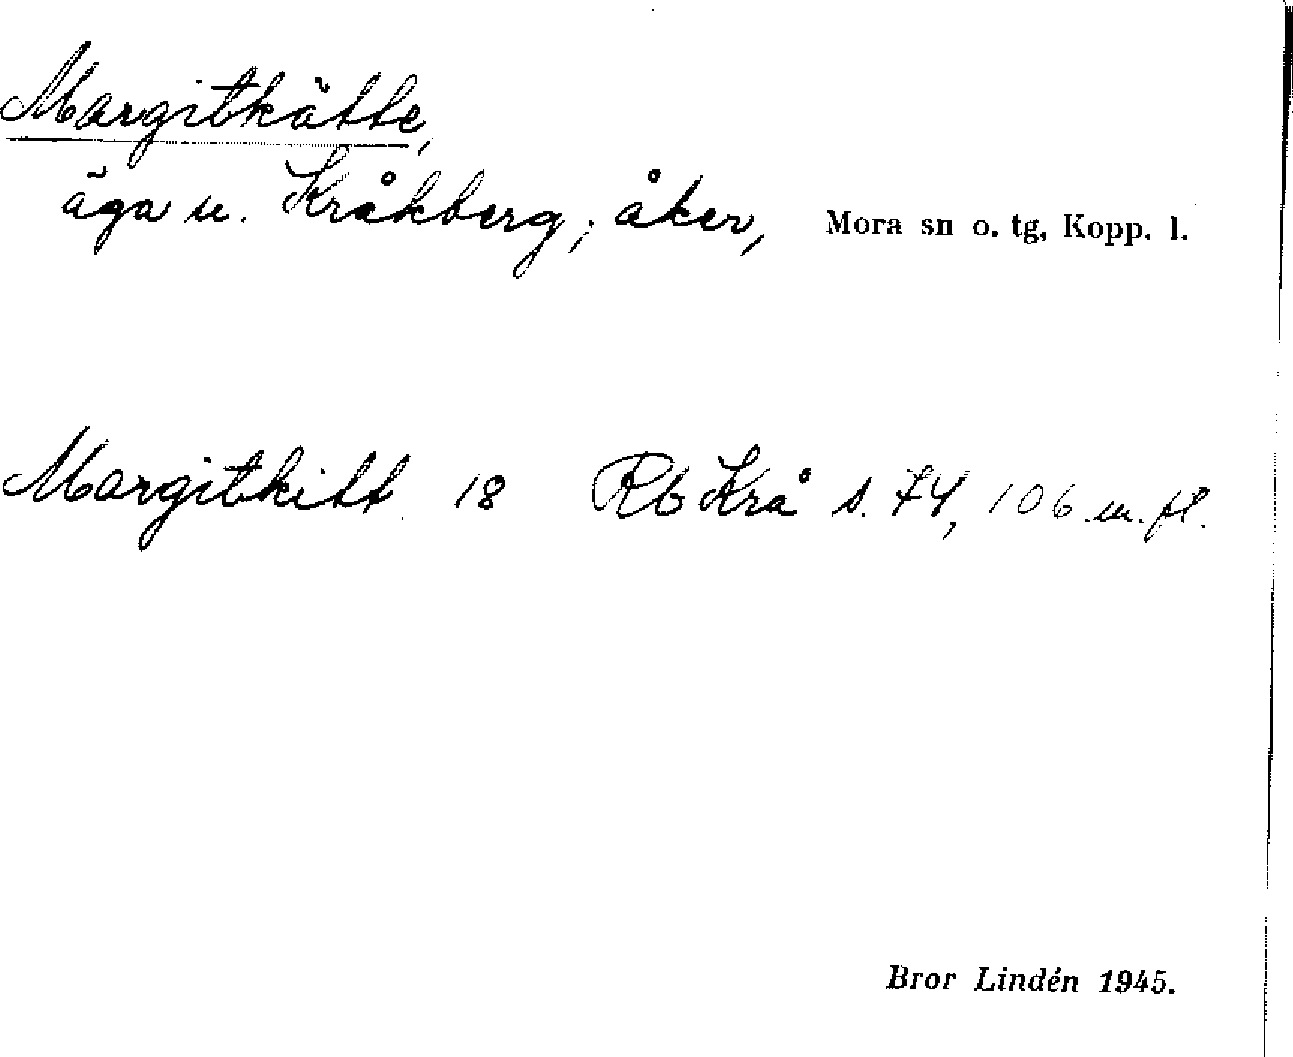 Margitkätte,
äga u. Kråkberg; åker, Mora sn o. tg, Kopp. l.
Margitkitt 18 Rb Krå s. 74, 106 m. fl.
Bror Lindén 1945.